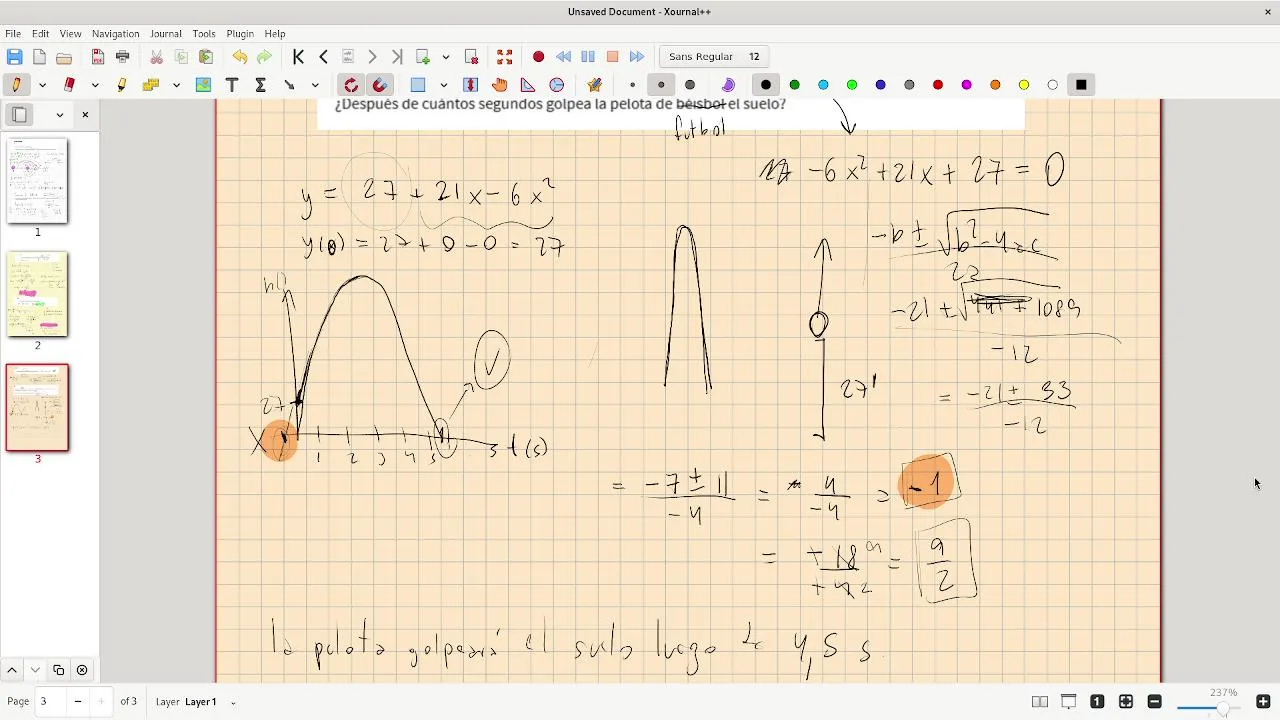 Unsaved Document - Xournal++
×
File Edit View Navigation Journal Tools Plugin Help
Sans Regular 12
¿Después de cuántos segundos golpea la pelota de béisbol el suelo?
futbol
-6x² + 21x + 27 = 0
y = 27 + 21x - 6x²
y(0) = 27 + 0 - 0 = 27
-b ±
-21 ± √ 1089
-12
27'
= -21 ± 33
-12
27
1 2 3 4 5 t(s)
= -7 ± 11
-4
= 4
-4
= -1
= +18 9
+4 2
= 9
2
la pelota golpeará el suelo luego de 4,5 s
1
2
3
Page 3 of 3 Layer Layer1
237%